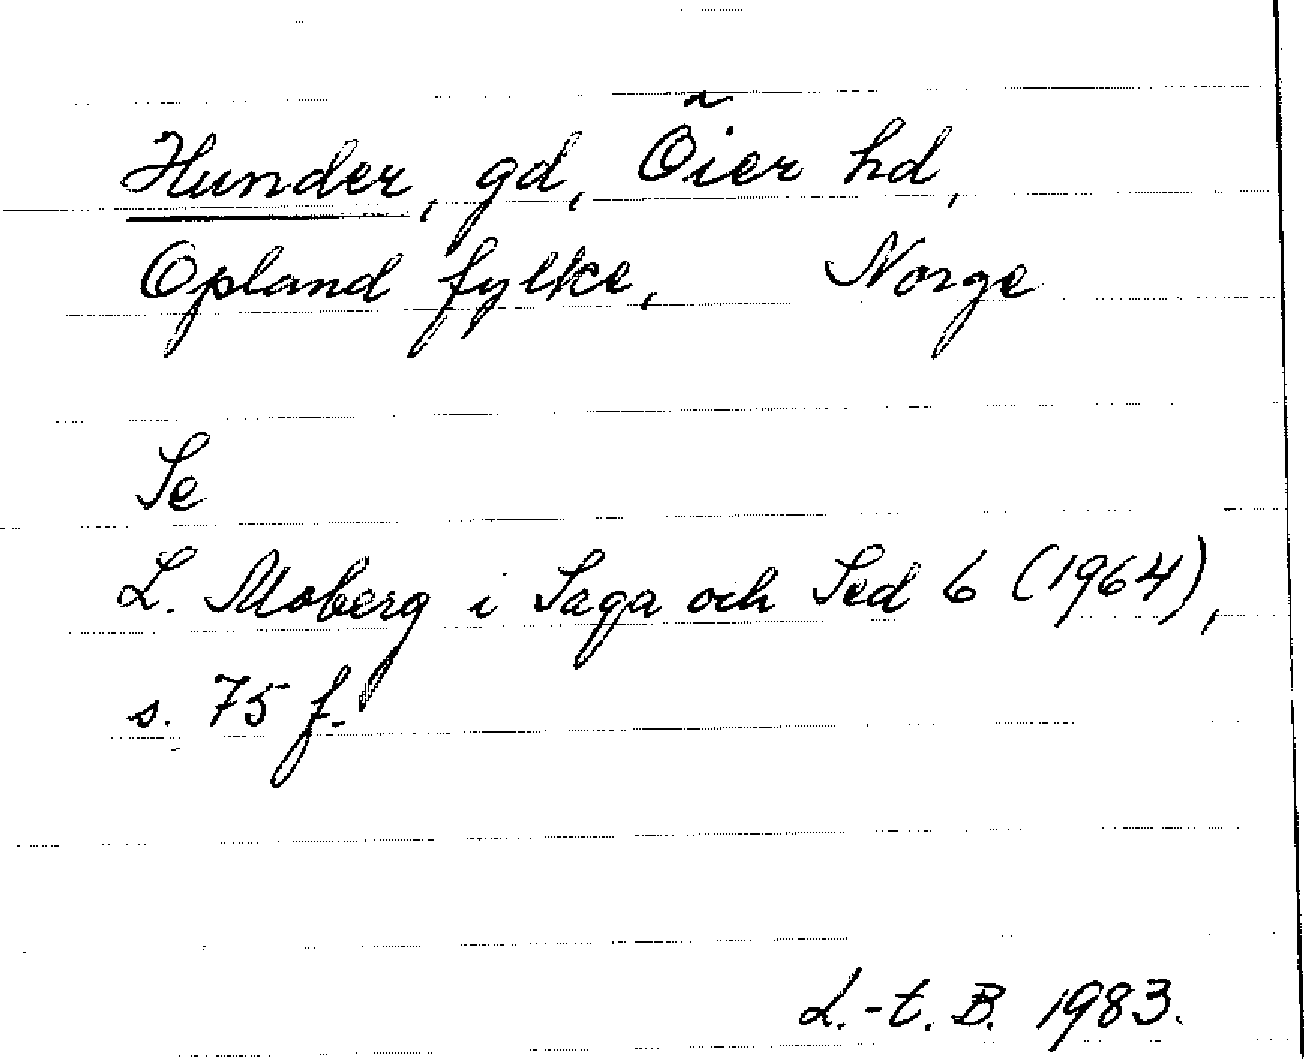 Hunder, gd, Õier hd,
Opland fylke, Norge
Se
L. Moberg i Saga och Sed 6 (1964),
s. 75 f.
L.-t. B. 1983.